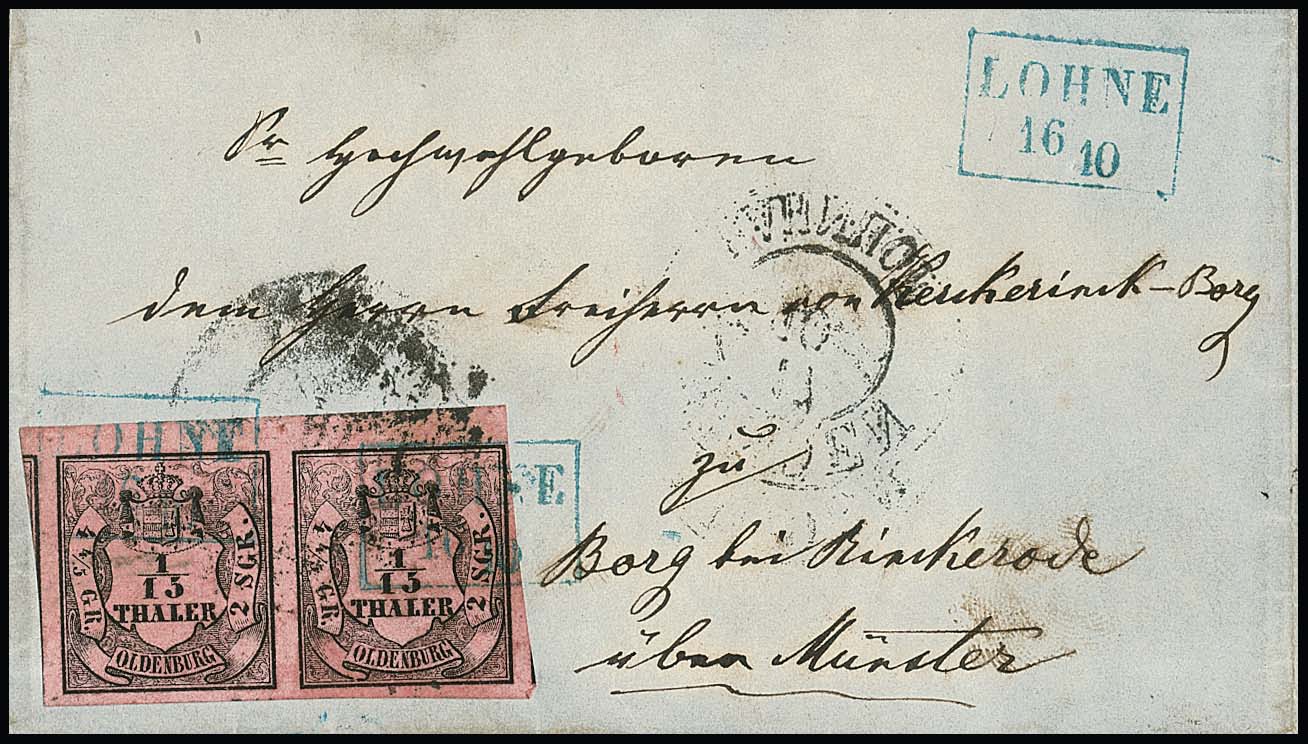 LOHNE
16 10
Sr Hochwohlgeboren
dem Herrn Freiherrn von Kerckerinck-Borg
zu
Borg bei Rinckerode
über Münster
LOHNE
LOHNE
4 4/5 GR.
1/15
THALER
2 SGR.
OLDENBURG
4 4/5 GR.
1/15
THALER
2 SGR.
OLDENBURG